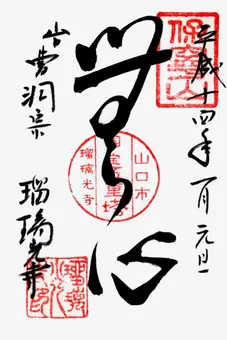 平成十四年一月元旦
無心
曹洞宗
瑠璃光寺
保寧山
山口市
国宝五重塔
瑠璃光寺